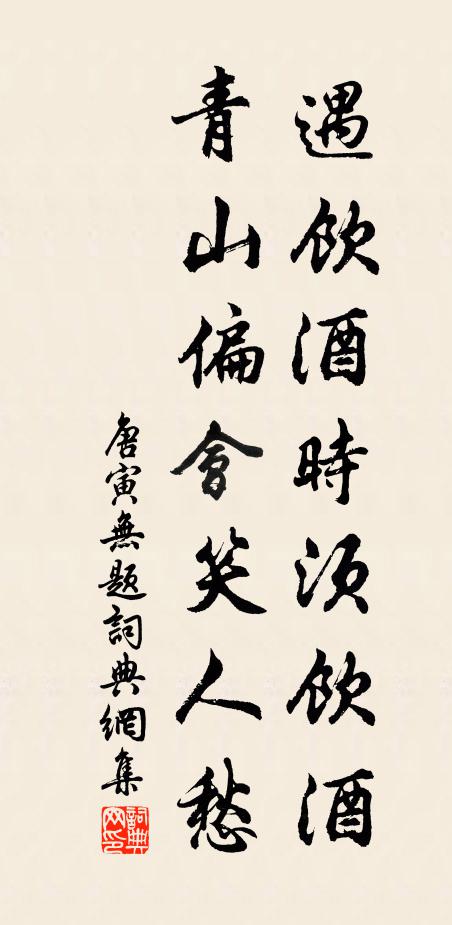 遇飲酒時須飲酒
青山偏會笑人愁
唐寅無題詞典網集
詞典網印